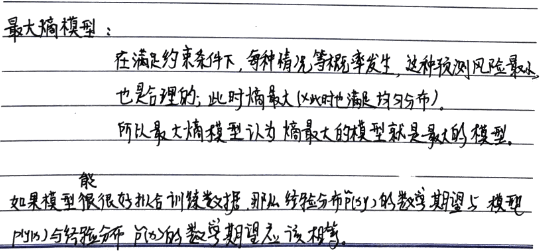 最大熵模型：
在满足约束条件下，每种情况等概率发生，这种预测风险最小，
也是合理的；此时熵最大（x此时也满足均匀分布）。
所以最大熵模型认为熵最大的模型就是最大的模型。
能
如果模型很很好拟合训练数据，那么经验分布p̃(x,y)的数学期望与模型
p(y|x)与经验分布 p̃(x)的数学期望应该相等。